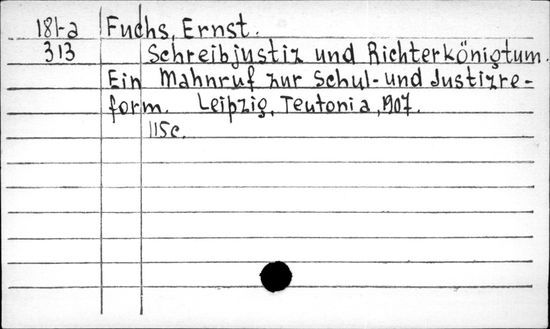 181-a Fuchs, Ernst.
313 Schreibjustiz und Richterkönigtum.
Ein Mahnruf zur Schul- und Justizre-
form. Leipzig, Teutonia, 1907.
115c.